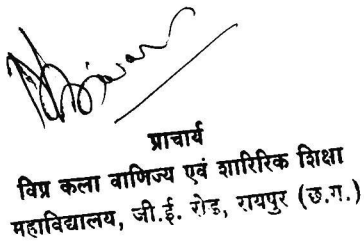 प्राचार्य
विप्र कला वाणिज्य एवं शारिरिक शिक्षा
महाविद्यालय, जी.ई. रोड, रायपुर (छ.ग.)